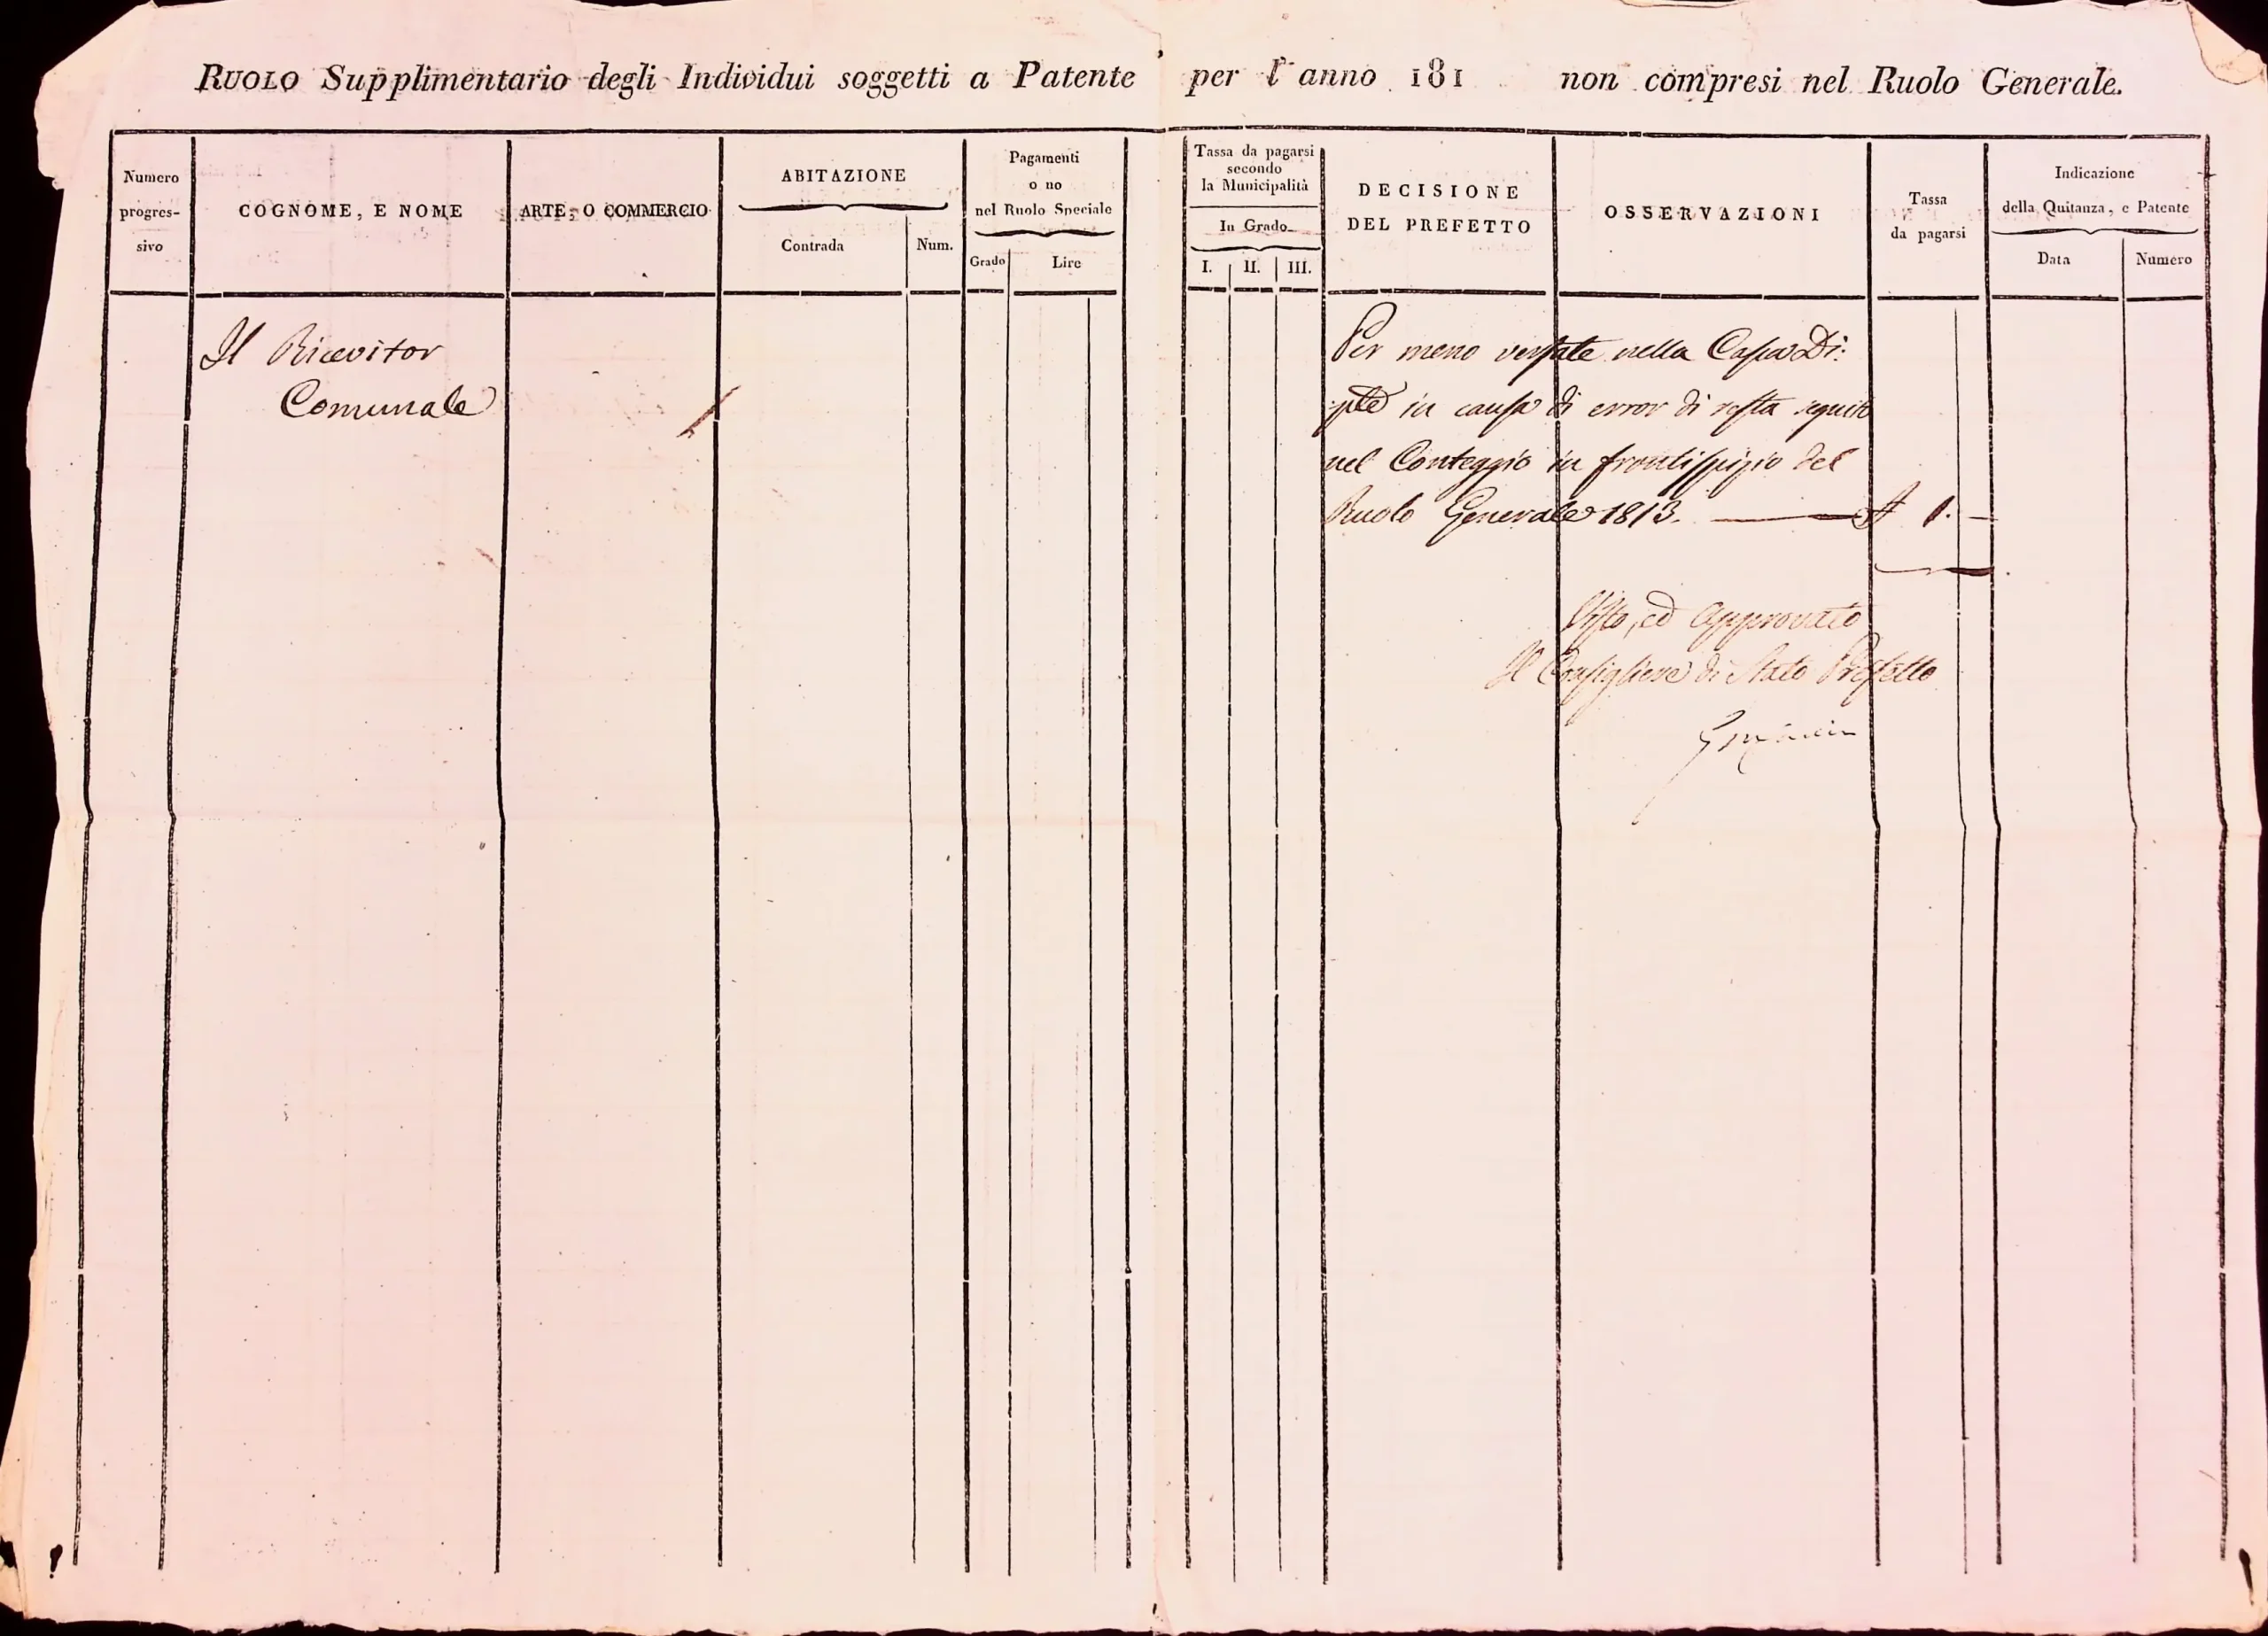 RUOLO Supplimentario degli Individui soggetti a Patente per l'anno 181 non compresi nel Ruolo Generale.
Numero
progres-
sivo
COGNOME, E NOME
ARTE, O COMMERCIO
ABITAZIONE
Contrada
Num.
Pagamenti
o no
nel Ruolo Speciale
Grado
Lire
Tassa da pagarsi
secondo
la Municipalità
In Grado
I. II. III.
DECISIONE
DEL PREFETTO
OSSERVAZIONI
Tassa
da pagarsi
Indicazione
della Quitanza, e Patente
Data
Numero
Il Ricevitor
Comunale
Per meno versate nella Cassa Di:
:ple in causa di error di resta seguito
nel Conteggio in frontispizio del
Ruolo Generale 1813. 1.
Visto, ed Approvato
Il Consigliere di Stato Prefetto